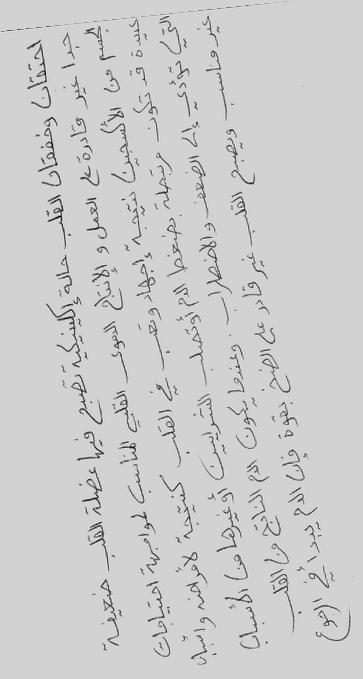 احتقان وخفقان القلب حالة إكلينيكية تصبح فيها عضلة القلب ضعيفة
جدا غير قادرة على العمل و الإنتاج الدموى القلبي المناسب لمواجهة احتياجات
الجسم من الأكسجين نتيجة إجهاد وتعب في القلب كنتيجة لأمراضه وأسباب
عديدة قد تكون مرتبطة بضغط الدم أو تصلب الشرايين أو غيرها من الأسباب
التي تؤدي إلى الضعف والاضطراب . وعندما يكون الدم الناتج من القلب
غير مناسب ويصبح القلب غير قادر على الضخ بقوة فإن الدم يبدأ في الرجوع